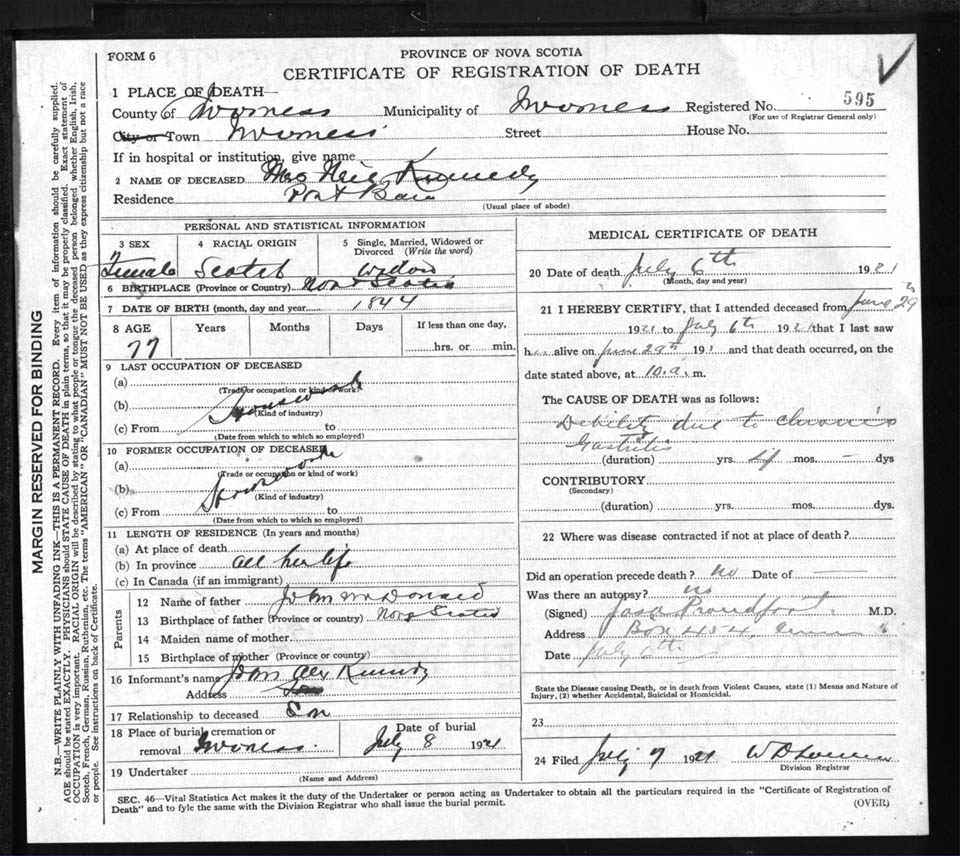 FORM 6
PROVINCE OF NOVA SCOTIA
CERTIFICATE OF REGISTRATION OF DEATH
1 PLACE OF DEATH—
County of Inverness Municipality of Inverness Registered No. 595
(For use of Registrar General only)
City or Town Inverness Street House No.
If in hospital or institution, give name
2 NAME OF DECEASED Mrs Neil Kennedy
Residence Port Ban
(Usual place of abode)
PERSONAL AND STATISTICAL INFORMATION
3 SEX 4 RACIAL ORIGIN 5 Single, Married, Widowed or
Divorced (Write the word)
Female Scotch Widow
6 BIRTHPLACE (Province or Country) Nova Scotia
7 DATE OF BIRTH (month, day and year) 1844
8 AGE Years Months Days If less than one day,
77 hrs. or min.
9 LAST OCCUPATION OF DECEASED
(a)
(Trade or occupation or kind of work)
(b) Housework
(Kind of industry)
(c) From to
(Date from which to which so employed)
10 FORMER OCCUPATION OF DECEASED
(a)
(Trade or occupation or kind of work)
(b) Housework
(Kind of industry)
(c) From to
(Date from which to which so employed)
11 LENGTH OF RESIDENCE (In years and months)
(a) At place of death
(b) In province all her life
(c) In Canada (if an immigrant)
Parents
12 Name of father John McDonald
13 Birthplace of father (Province or country) Nova Scotia
14 Maiden name of mother
15 Birthplace of mother (Province or country)
16 Informant's name John Alex Kennedy
Address
17 Relationship to deceased Son
18 Place of burial, cremation or
removal Inverness.
Date of burial
July 8 1921
19 Undertaker
(Name and Address)
MEDICAL CERTIFICATE OF DEATH
20 Date of death July 6th 1921
(Month, day and year)
21 I HEREBY CERTIFY, that I attended deceased from June 29th
1921 to July 6th 1921 that I last saw
her alive on June 29th 191 and that death occurred, on the
date stated above, at 10. a. m.
The CAUSE OF DEATH was as follows:
Debility due to chronic
Gastritis
(duration) yrs. mos. — dys
CONTRIBUTORY
(Secondary)
(duration) yrs. mos. dys.
22 Where was disease contracted if not at place of death?
Did an operation precede death? No Date of —
Was there an autopsy? no
(Signed) Proudfoot M.D.
Address Box 454,
Date July 6th
State the Disease causing Death, or in death from Violent Causes, state (1) Means and Nature of
Injury, (2) whether Accidental, Suicidal or Homicidal.
23
24 Filed July 7 1921
Division Registrar
SEC. 46—Vital Statistics Act makes it the duty of the Undertaker or person acting as Undertaker to obtain all the particulars required in the "Certificate of Registration of
Death" and to fyle the same with the Division Registrar who shall issue the burial permit.
(OVER)
MARGIN RESERVED FOR BINDING
N.B.—WRITE PLAINLY WITH UNFADING INK—THIS IS A PERMANENT RECORD. Every item of information should be carefully supplied.
AGE should be stated EXACTLY. PHYSICIANS should STATE CAUSE OF DEATH in plain terms, so that it may be properly classified. Exact statement of
OCCUPATION is very important. RACIAL ORIGIN will be described by stating to what people or tongue the deceased person belonged whether English, Irish,
Scotch, French, German, Russian, Ruthenian, etc. The terms "AMERICAN" or "CANADIAN" MUST NOT BE USED as they express citizenship but not a race
or people. See instructions on back of Certificate.